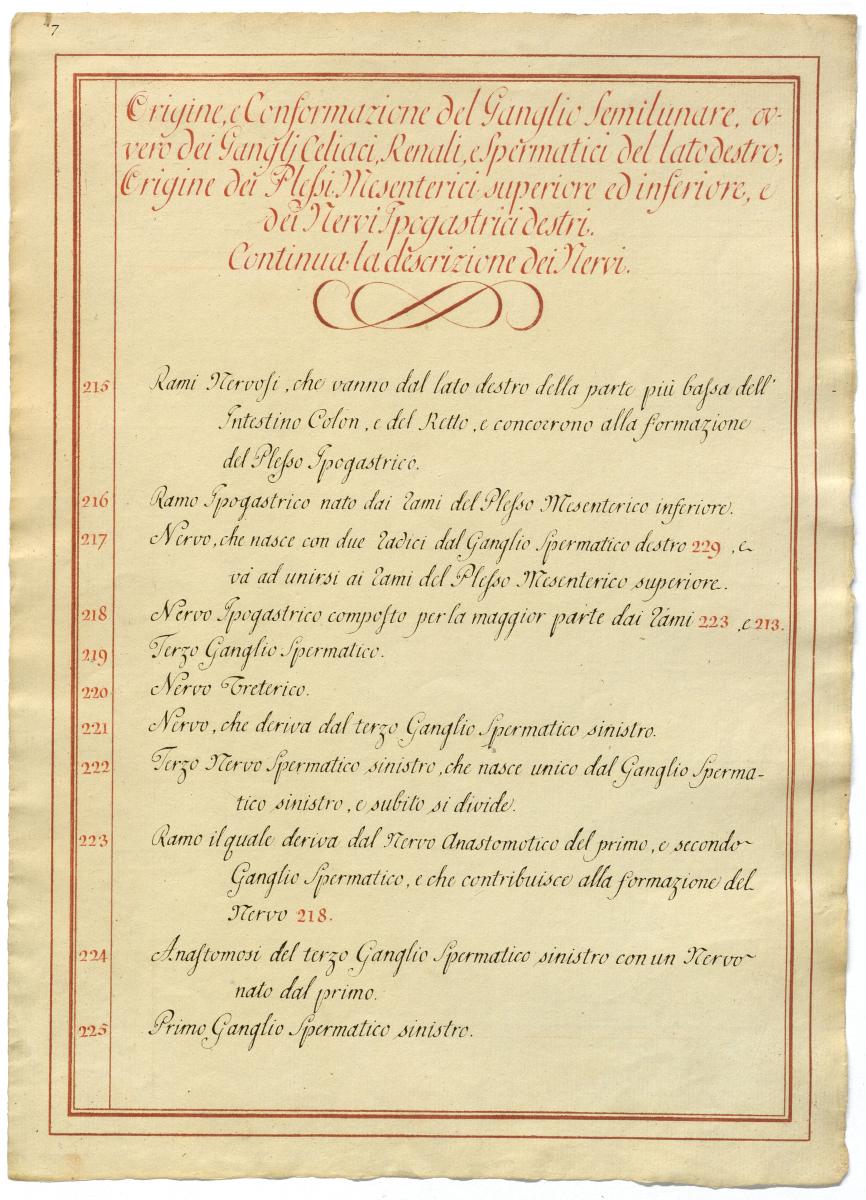 7
Origine, e Conformazione del Ganglio Semilunare, ov-
vero dei Ganglj Celiaci, Renali, e Spermatici del lato destro;
Origine dei Plessi Mesenterici superiore ed inferiore, e
dei Nervi Ipogastrici destri.
Continua la descrizione dei Nervi.
215 Rami Nervosi, che vanno dal lato destro della parte più bassa dell'
Intestino Colon, e del Retto, e concorrono alla formazione
del Plesso Ipogastrico.
216 Ramo Ipogastrico nato dai rami del Plesso Mesenterico inferiore.
217 Nervo, che nasce con due radici dal Ganglio Spermatico destro 229, e
và ad unirsi ai rami del Plesso Mesenterico superiore.
218 Nervo Ipogastrico composto per la maggior parte dai rami 223, e 213.
219 Terzo Ganglio Spermatico.
220 Nervo Ureterico.
221 Nervo, che deriva dal terzo Ganglio Spermatico sinistro.
222 Terzo Nervo Spermatico sinistro, che nasce unico dal Ganglio Sperma-
tico sinistro, e subito si divide.
223 Ramo il quale deriva dal Nervo Anastomotico del primo, e secondo
Ganglio Spermatico, e che contribuisce alla formazione del
Nervo 218.
224 Anastomosi del terzo Ganglio Spermatico sinistro con un Nervo
nato dal primo.
225 Primo Ganglio Spermatico sinistro.